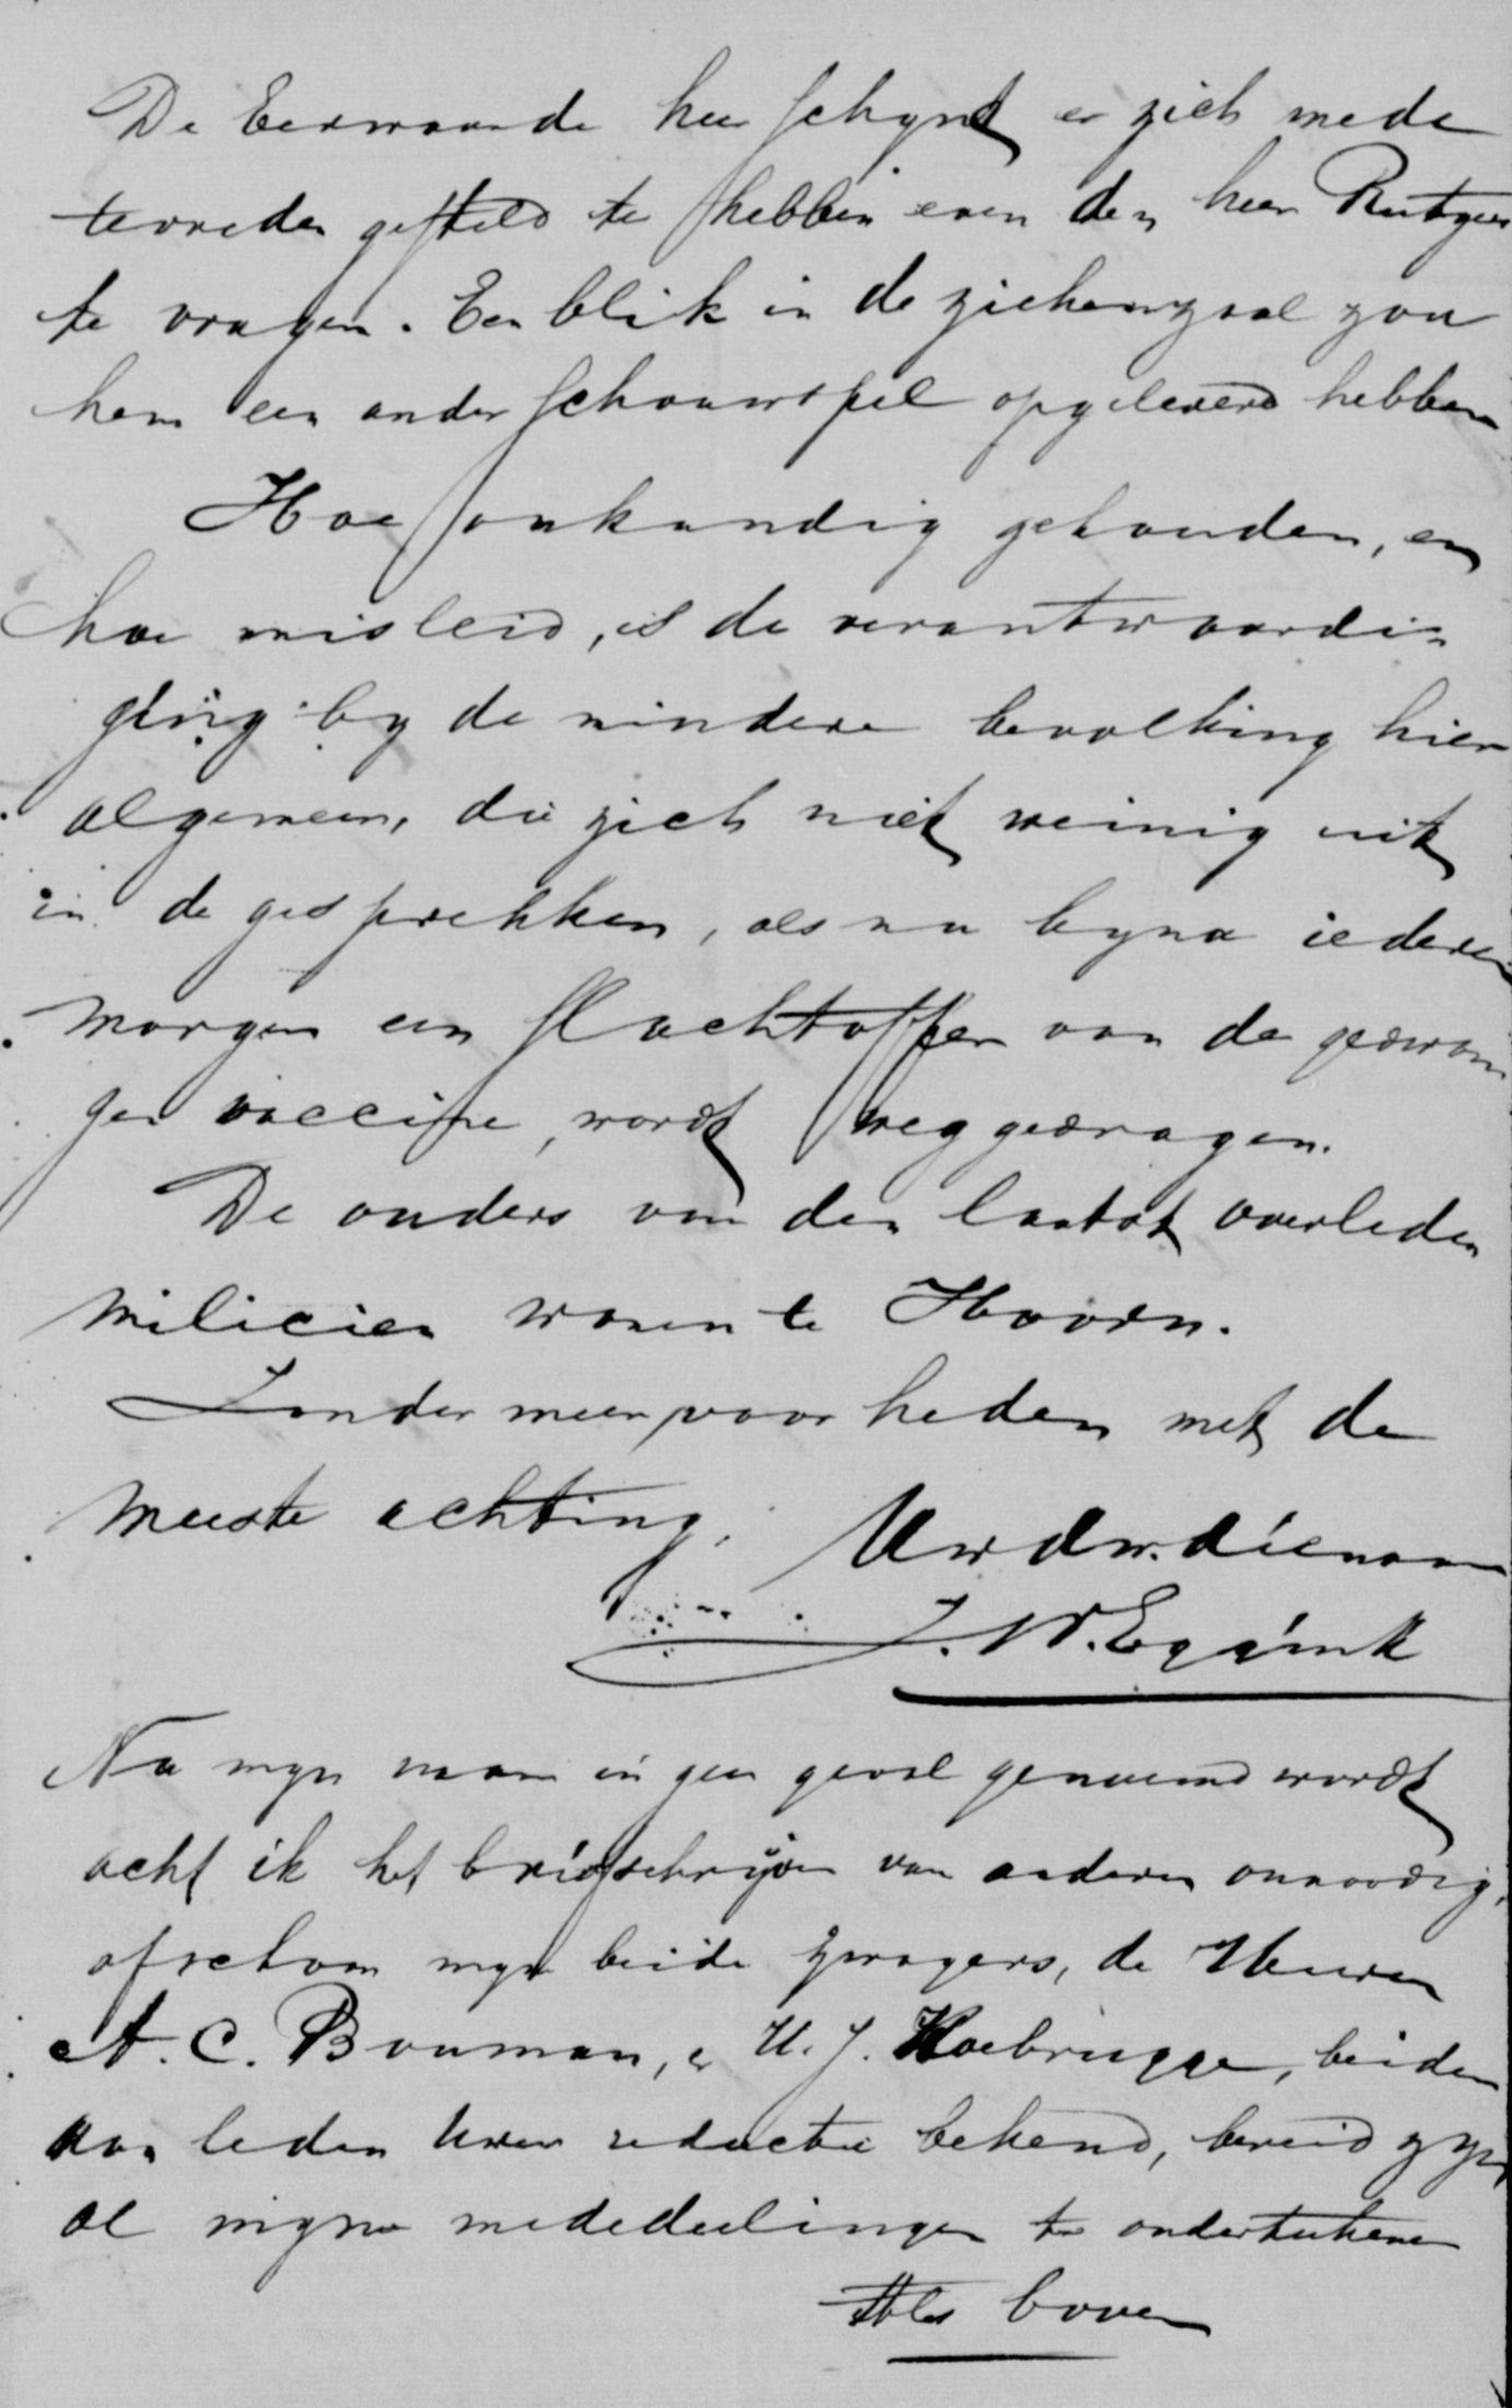 De Eerwaarde heer schynt er zich mede
tevreden gesteld te hebben even den heer Rutgers
te vragen. Een blik in de ziekenzaal zou
hem een ander schouwspel opgeleverd hebben
Hoe onkundig gehouden, en
hoe misleid, is de verantwaardi=
ging by de mindere bevolking hier
algemeen, die zich niet weinig uit
in de gesprekken, als nu byna iederen
morgen een slachtoffer van de gedwon
gen vaccine, wordt weggedragen.
De ouders van den laatst overleden
milicien wonen te Hoorn.
Zonder meer voor heden met de
meeste achting.
Uw dw. dienaar
J. W. Eggink
Nu myn naam in geen geval genoemd wordt
acht ik het briefschrijven van anderen onnoodig,
ofschoon myn beide zwagers, de Heeren
A. C. Bouman, en H. J. Koebrugge, beiden
aan leden uwer redactie bekend, bereid zyn
al myne mededeelingen te onderteekenen
Als boven